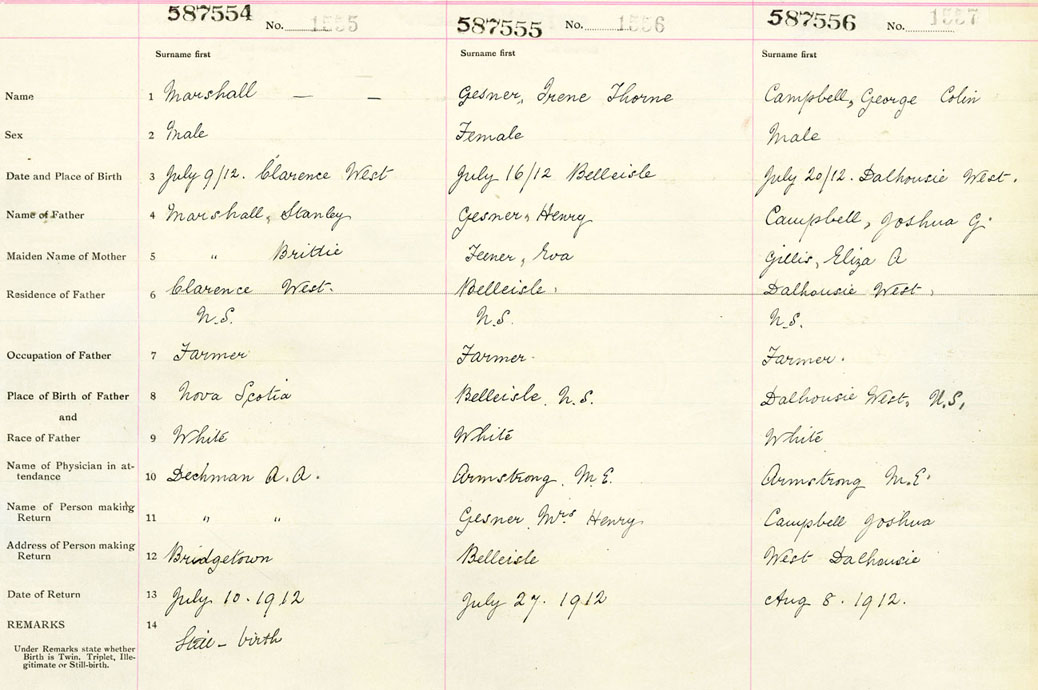 587554 No. 1555 587555 No. 1556 587556 No. 1557
Surname first Surname first Surname first
Name 1 Marshall — — Gesner, Irene Thorne Campbell, George Colin
Sex 2 Male Female Male
Date and Place of Birth 3 July 9/12. Clarence West July 16/12 Belleisle July 20/12. Dalhousie West.
Name of Father 4 Marshall, Stanley Gesner, Henry Campbell, Joshua G.
Maiden Name of Mother 5 " Brittie Feener, Eva Gillis, Eliza A
Residence of Father 6 Clarence West. Belleisle, Dalhousie West,
N.S. N.S. N.S.
Occupation of Father 7 Farmer Farmer. Farmer.
Place of Birth of Father 8 Nova Scotia Belleisle, N.S. Dalhousie West, N.S.
and
Race of Father 9 White White White
Name of Physician in at-
tendance 10 Dechman A.A. Armstrong, M.E. Armstrong M.E.
Name of Person making
Return 11 " " Gesner, Mrs Henry, Campbell Joshua
Address of Person making
Return 12 Bridgetown Belleisle West Dalhousie
Date of Return 13 July 10. 1912 July 27. 1912 Aug 8. 1912.
REMARKS 14
Still-birth
Under Remarks state whether
Birth is Twin, Triplet, Ille-
gitimate or Still-birth.